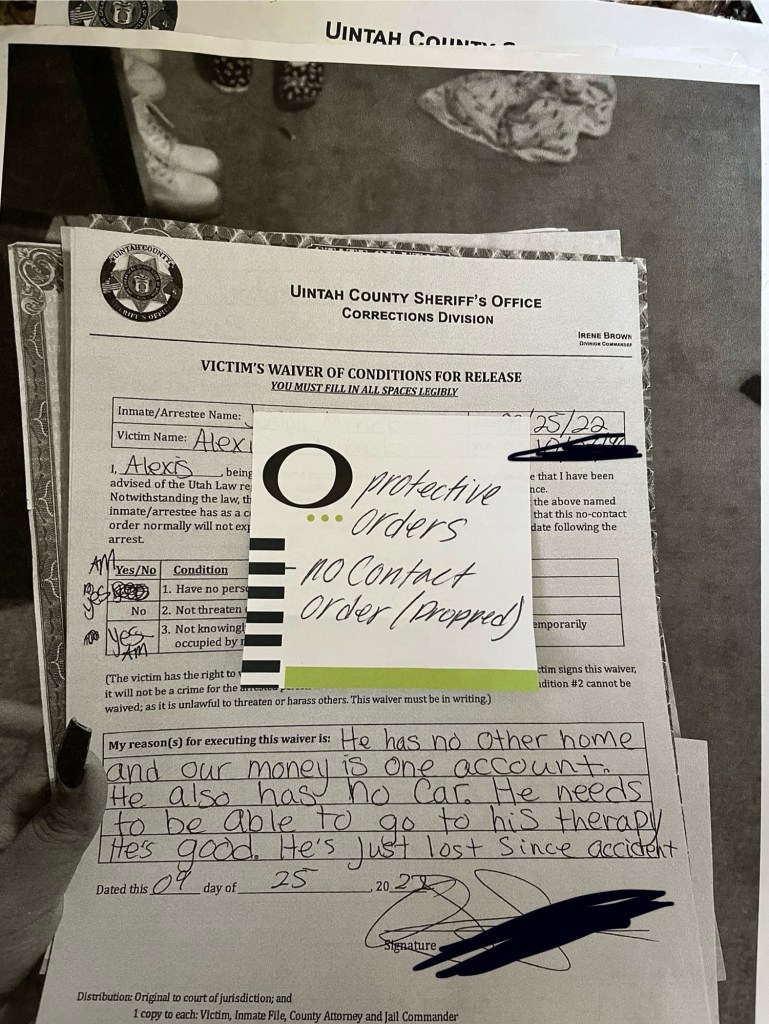 UINTAH COUNTY
UINTAH COUNTY
SHERIFF'S OFFICE
UINTAH COUNTY SHERIFF'S OFFICE
CORRECTIONS DIVISION
IRENE BROWN
DIVISION COMMANDER
VICTIM'S WAIVER OF CONDITIONS FOR RELEASE
YOU MUST FILL IN ALL SPACES LEGIBLY
Inmate/Arrestee Name: /25/22
Victim Name: Alexi
I, Alexis being e that I have been
advised of the Utah Law re nce.
Notwithstanding the law, th the above named
inmate/arrestee has as a c that this no-contact
order normally will not exp date following the
arrest.
O protective
orders
no Contact
order (Dropped)
AM Yes/No Condition
yes 1. Have no pers
No 2. Not threaten
Yes 3. Not knowingl emporarily
AM occupied by
(The victim has the right to ctim signs this waiver,
it will not be a crime for the arrested person ndition #2 cannot be
waived; as it is unlawful to threaten or harass others. This waiver must be in writing.)
My reason(s) for executing this waiver is: He has no other home
and our money is one account.
He also has no car. He needs
to be able to go to his therapy
He's good. He's just lost since accident
Dated this 09 day of 25, 2022
Signature
Distribution: Original to court of jurisdiction; and
1 copy to each: Victim, Inmate File, County Attorney and Jail Commander